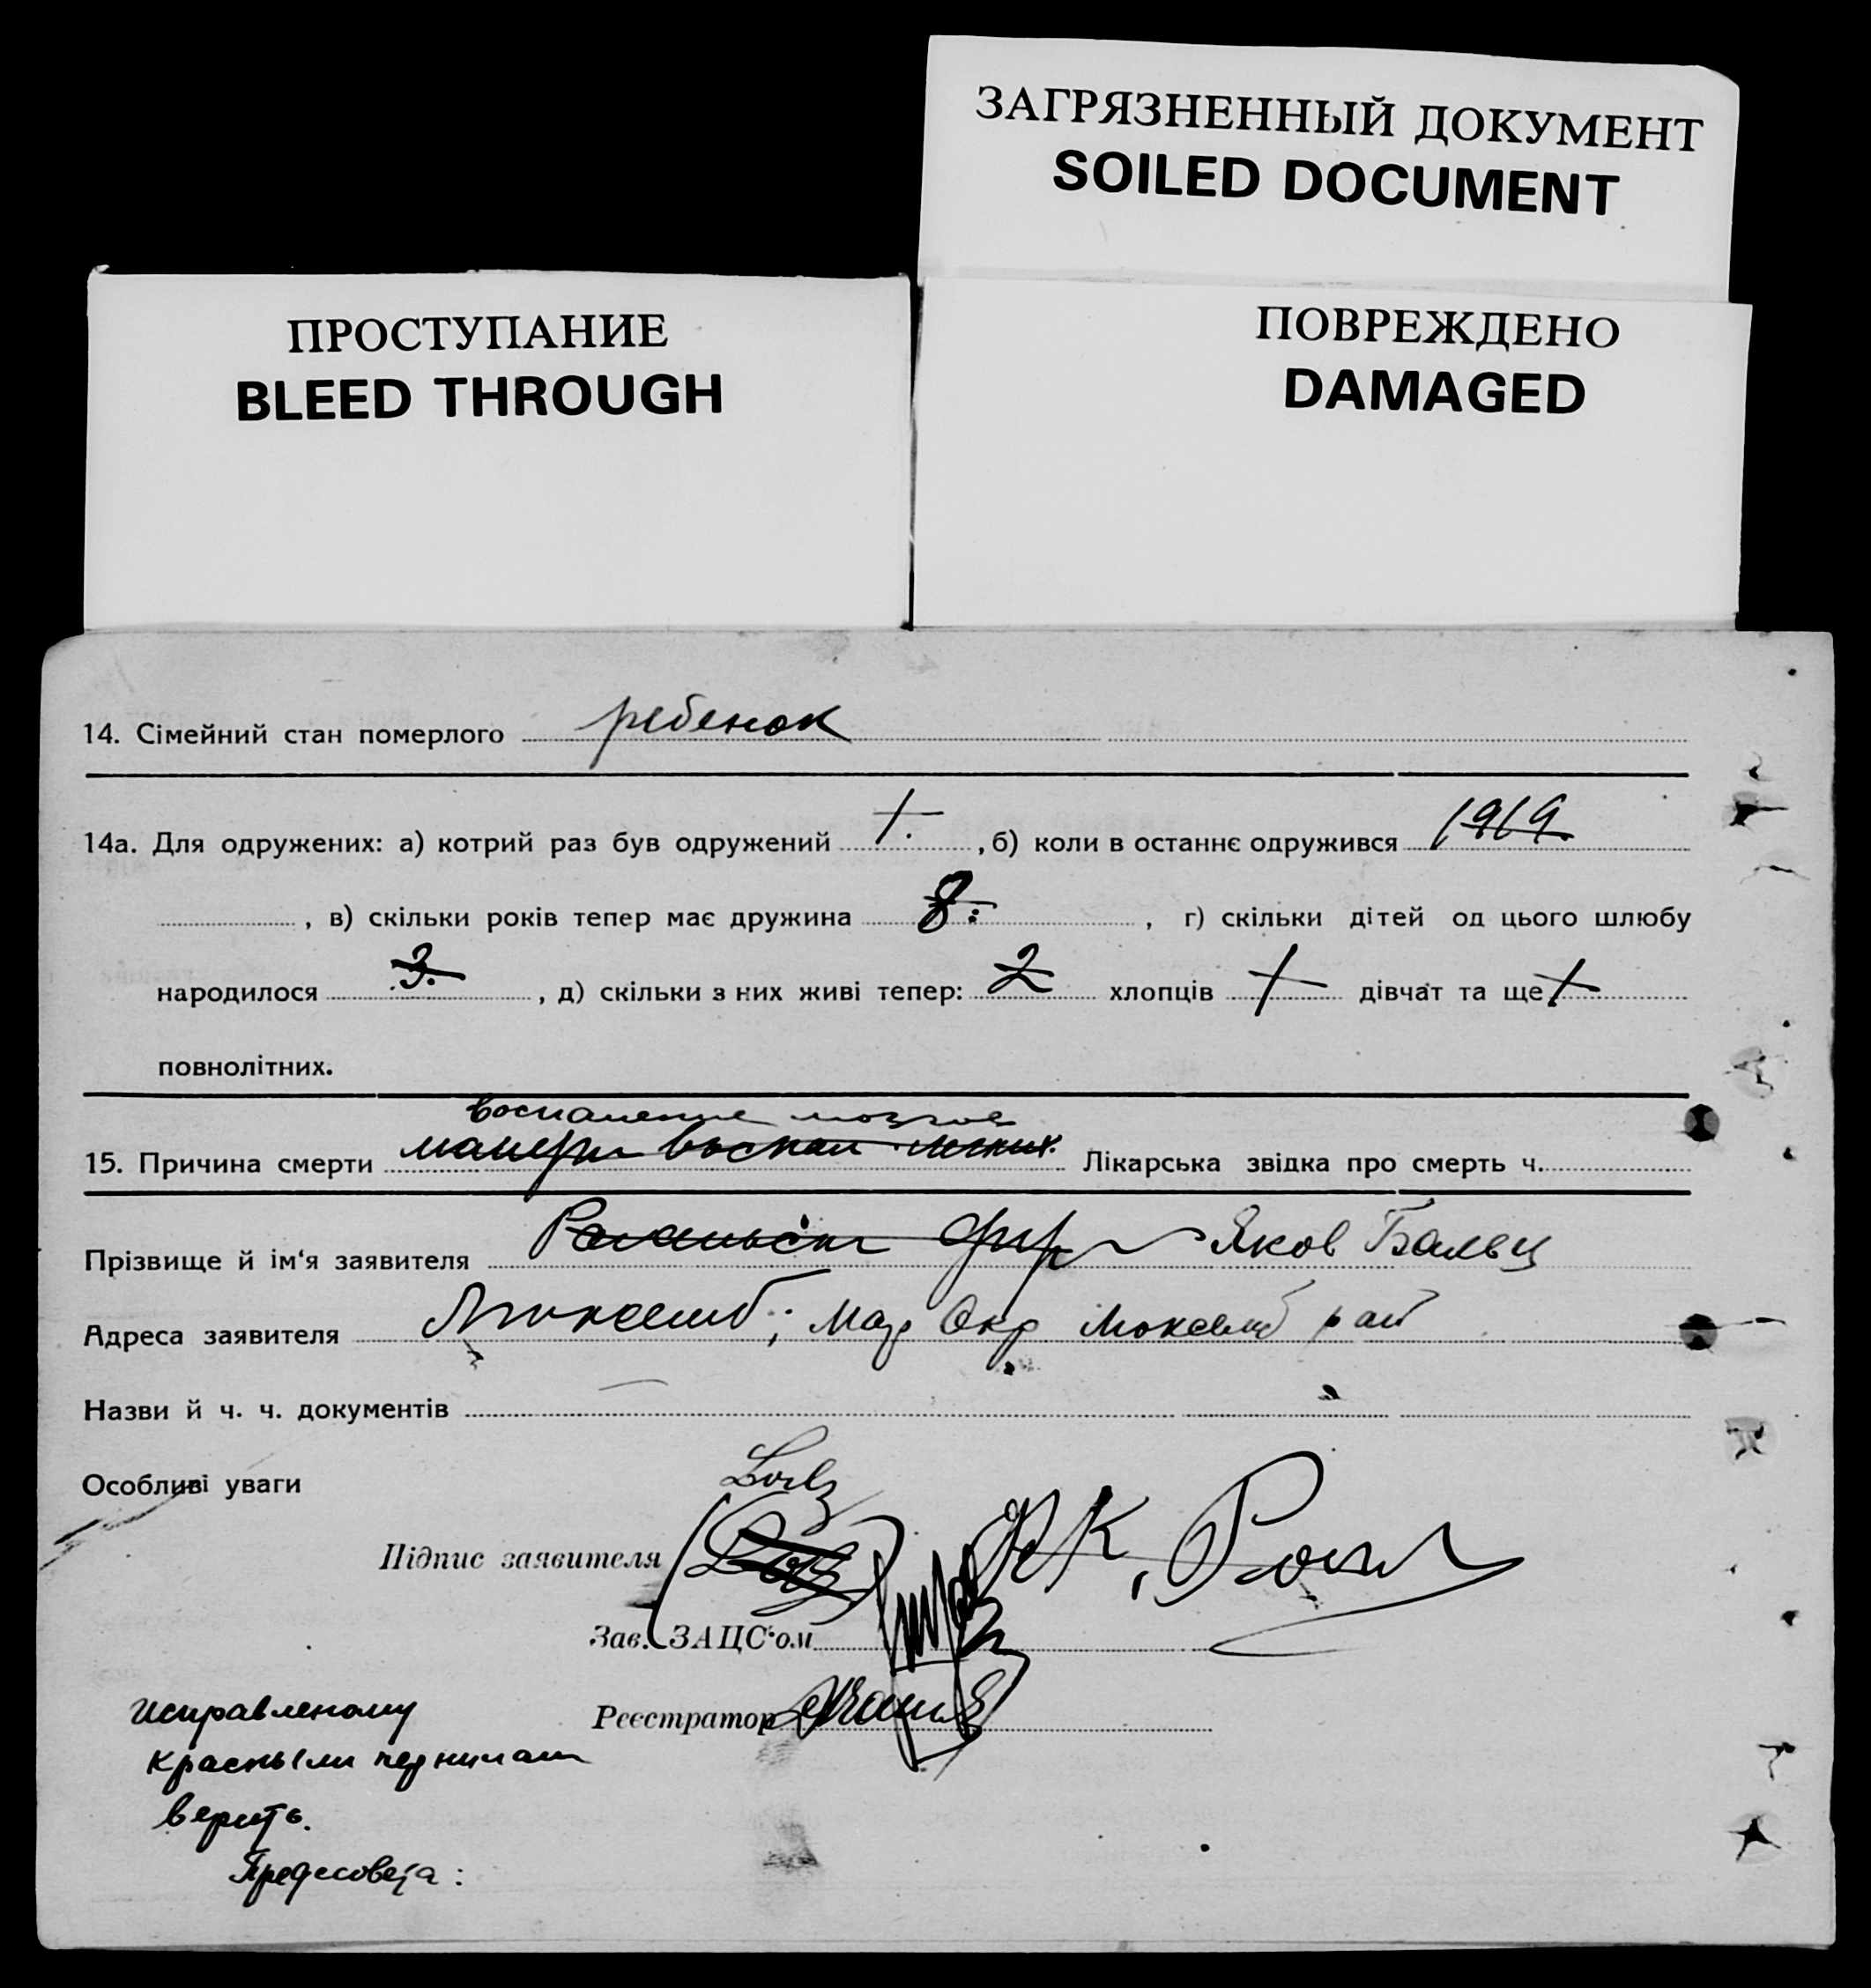 ЗАГРЯЗНЕННЫЙ ДОКУМЕНТ
SOILED DOCUMENT
ПРОСТУПАНИЕ
BLEED THROUGH
ПОВРЕЖДЕНО
DAMAGED
14. Сімейний стан померлого ребенок
14а. Для одружених: а) котрий раз був одружений 1. , б) коли в останнє одружився 1919
, в) скільки років тепер має дружина 8. , г) скільки дітей од цього шлюбу
народилося 3. , д) скільки з них живі тепер: 2 хлопців 1 дівчат та ще 1
повнолітних.
воспаление мозгов
15. Причина смерти воспал легких. Лікарська звідка про смерть ч.
Прізвище й ім‘я заявителя Яков Бальц
Адреса заявителя Мар Окр рай
Назви й ч. ч. документів
Особливі уваги
Підпис заявителя
Зав. ЗАЦС‘ом
Реєстратор
исправленому
красными
верить.
Предсовета: